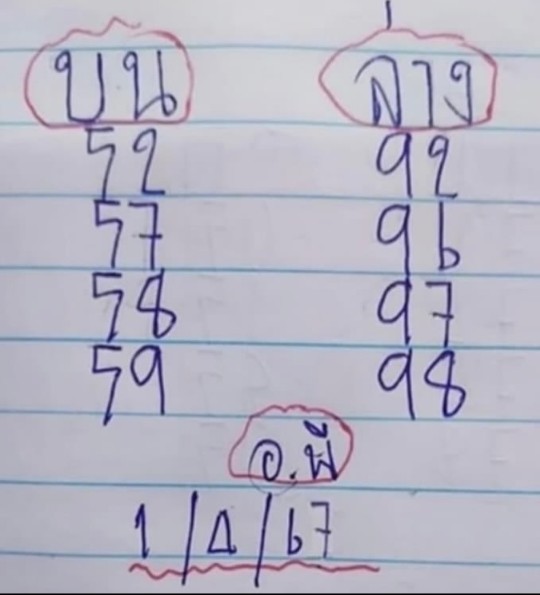 บน ล่าง
52 92
57 96
58 97
59 98
อ.พี
1/4/67